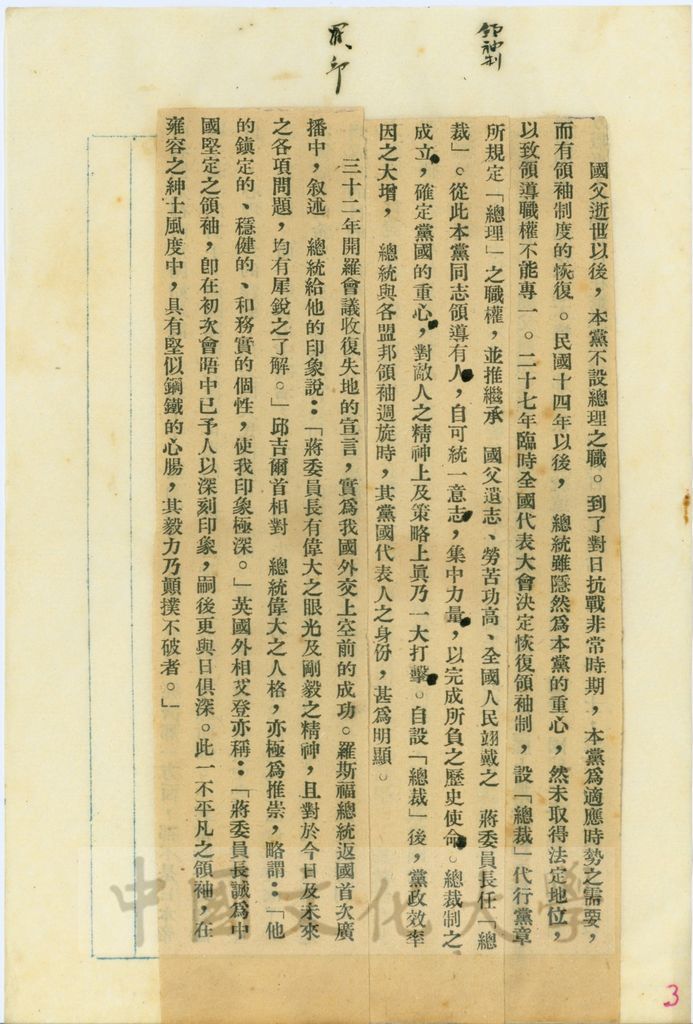 領袖制
國父逝世以後，本黨不設總理之職。到了對日抗戰非常時期，本黨為適應時勢之需要，
而有領袖制度的恢復。民國十四年以後，　總統雖隱然為本黨的重心，然未取得法定地位，
以致領導職權不能專一。二十七年臨時全國代表大會決定恢復領袖制，設「總裁」代行黨章
所規定「總理」之職權，並推繼承　國父遺志、勞苦功高、全國人民翊戴之　蔣委員長任「總
裁」。從此本黨同志領導有人，自可統一意志，集中力量，以完成所負之歷史使命。總裁制之
成立，確定黨國的重心，對敵人之精神上及策略上眞乃一大打擊。自設「總裁」後，黨政效率
因之大增，　總統與各盟邦領袖週旋時，其黨國代表人之身份，甚為明顯。
三十二年開羅會議收復失地的宣言，實為我國外交上空前的成功。羅斯福總統返國首次廣
播中，叙述　總統給他的印象說：「蔣委員長有偉大之眼光及剛毅之精神，且對於今日及未來
之各項問題，均有犀銳之了解。」邱吉爾首相對　總統偉大之人格，亦極為推崇，略謂：「他
的鎭定的、穩健的、和務實的個性，使我印象極深。」英國外相艾登亦稱：「蔣委員長誠為中
國堅定之領袖，卽在初次會晤中已予人以深刻印象，嗣後更與日俱深。此一不平凡之領袖，在
雍容之紳士風度中，具有堅似鋼鐵的心腸，其毅力乃顚撲不破者。」
3
中國文化大學